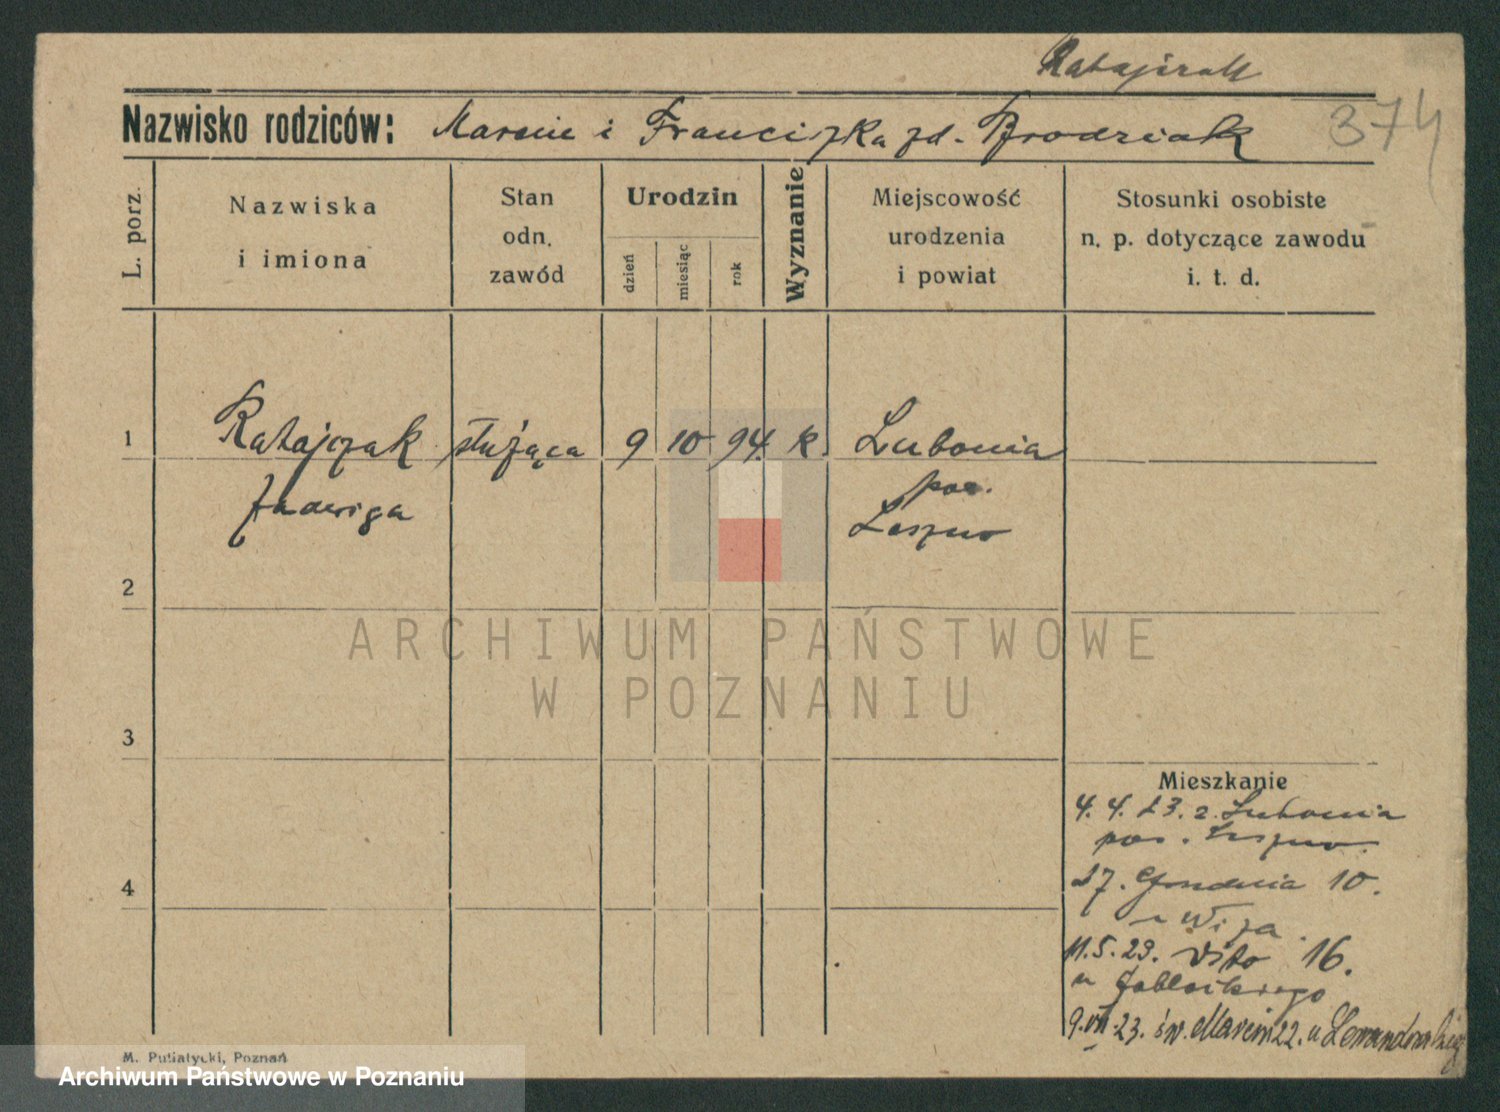 Ratajczak
Nazwisko rodziców: Marcin i Franciszka zd. Brodziak
374
L. porz.
Nazwiska
i imiona
Stan
odn.
zawód
Urodzin
dzień
miesiąc
rok
Wyznanie
Miejscowość
urodzenia
i powiat
Stosunki osobiste
n. p. dotyczące zawodu
i. t. d.
1 Ratajczak służąca 9 10 94. k. Lubonia
pow.
Jadwiga Leszno
2
ARCHIWUM PAŃSTWOWE
W POZNANIU
3
Mieszkanie
4. 4. 23. z Lubonia
pow. Leszno
4
27. 10.
u
11.5.23. 16.
u Jabłońskiego
9.VII.23. św. Marcin 22. u Lewandowskiego
M. Putiatycki, Poznań
Archiwum Państwowe w Poznaniu